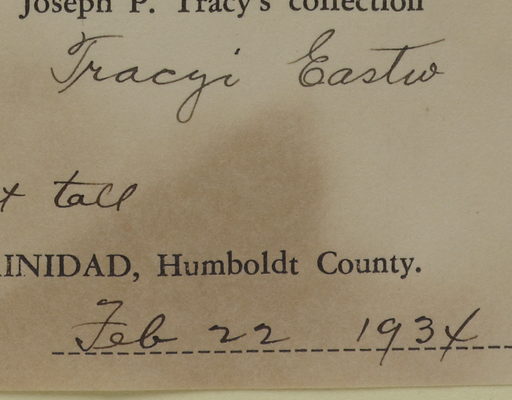 Joseph P. Tracy's collection
Tracyi Eastw
tall
INIDAD, Humboldt County.
Feb 22 1934